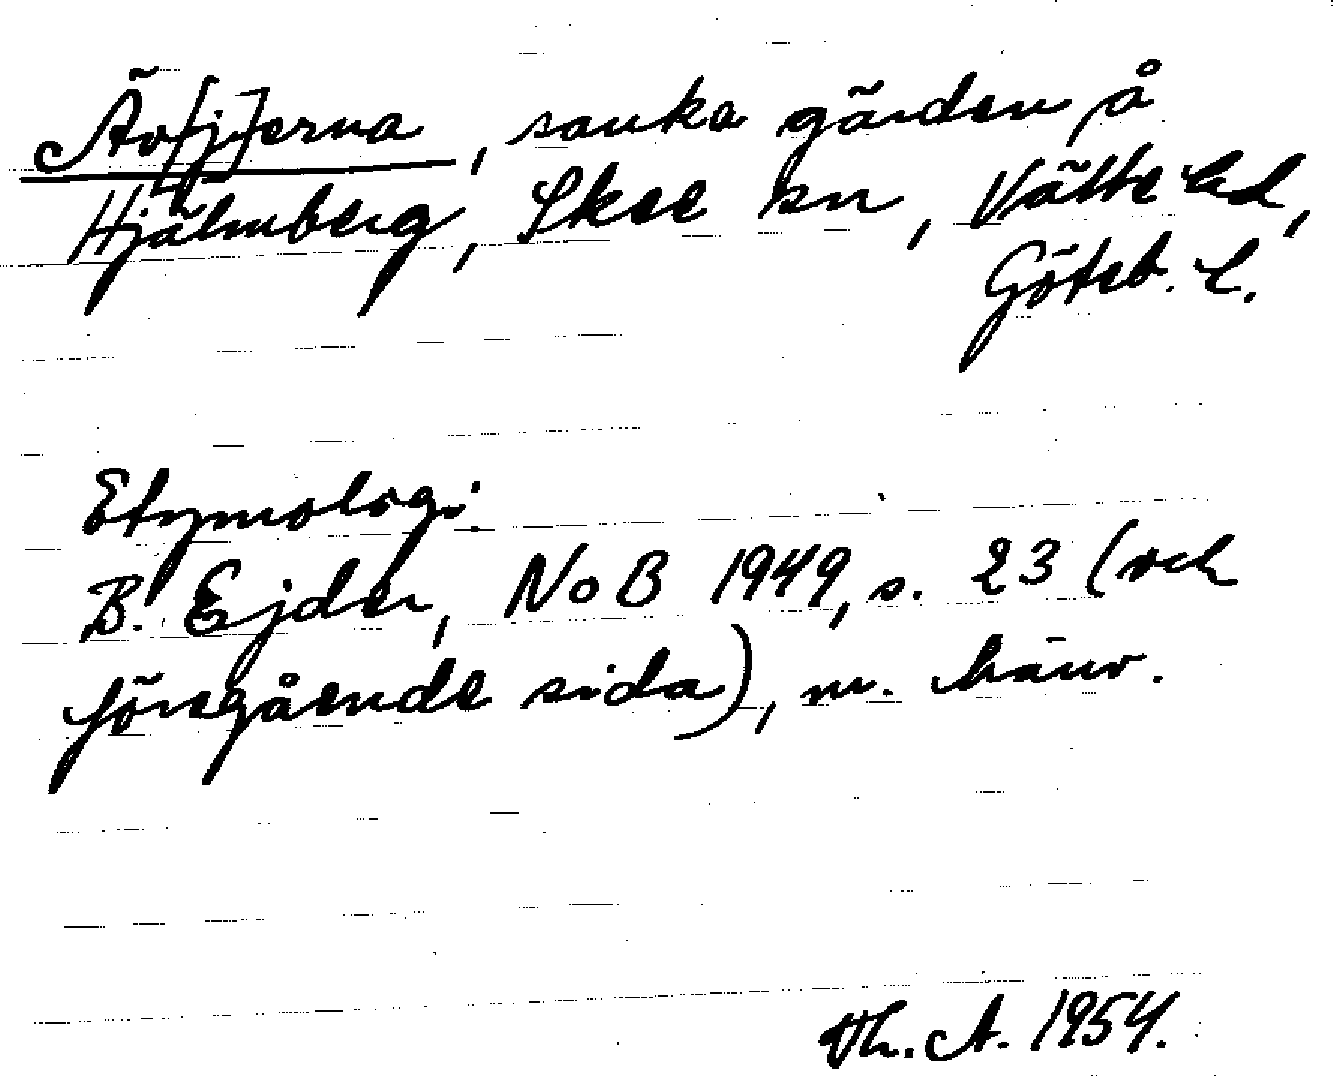 Äv[j]erna, sanka gärden på
Hjälmberg, Skee sn, Vätte hd,
Göteb. l.
Etymologi:
B. Ejder, NoB 1949, s. 23 (och
föregående sida), m. hänv.
Th. A. 1954.